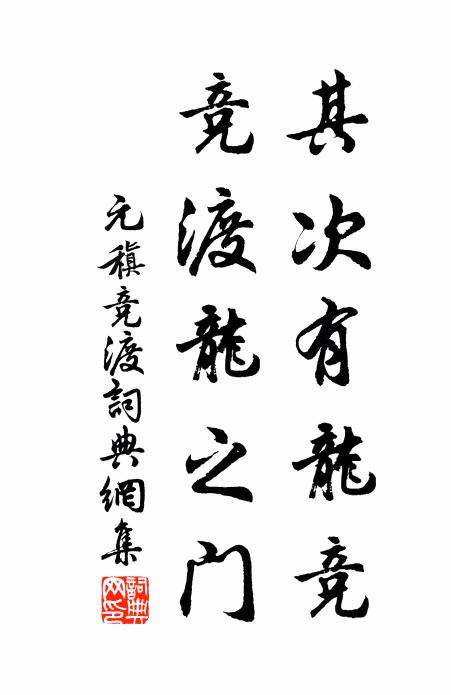 其次有龍竞
竞渡龍之门
元稹竞渡詞典網集
詞典网印